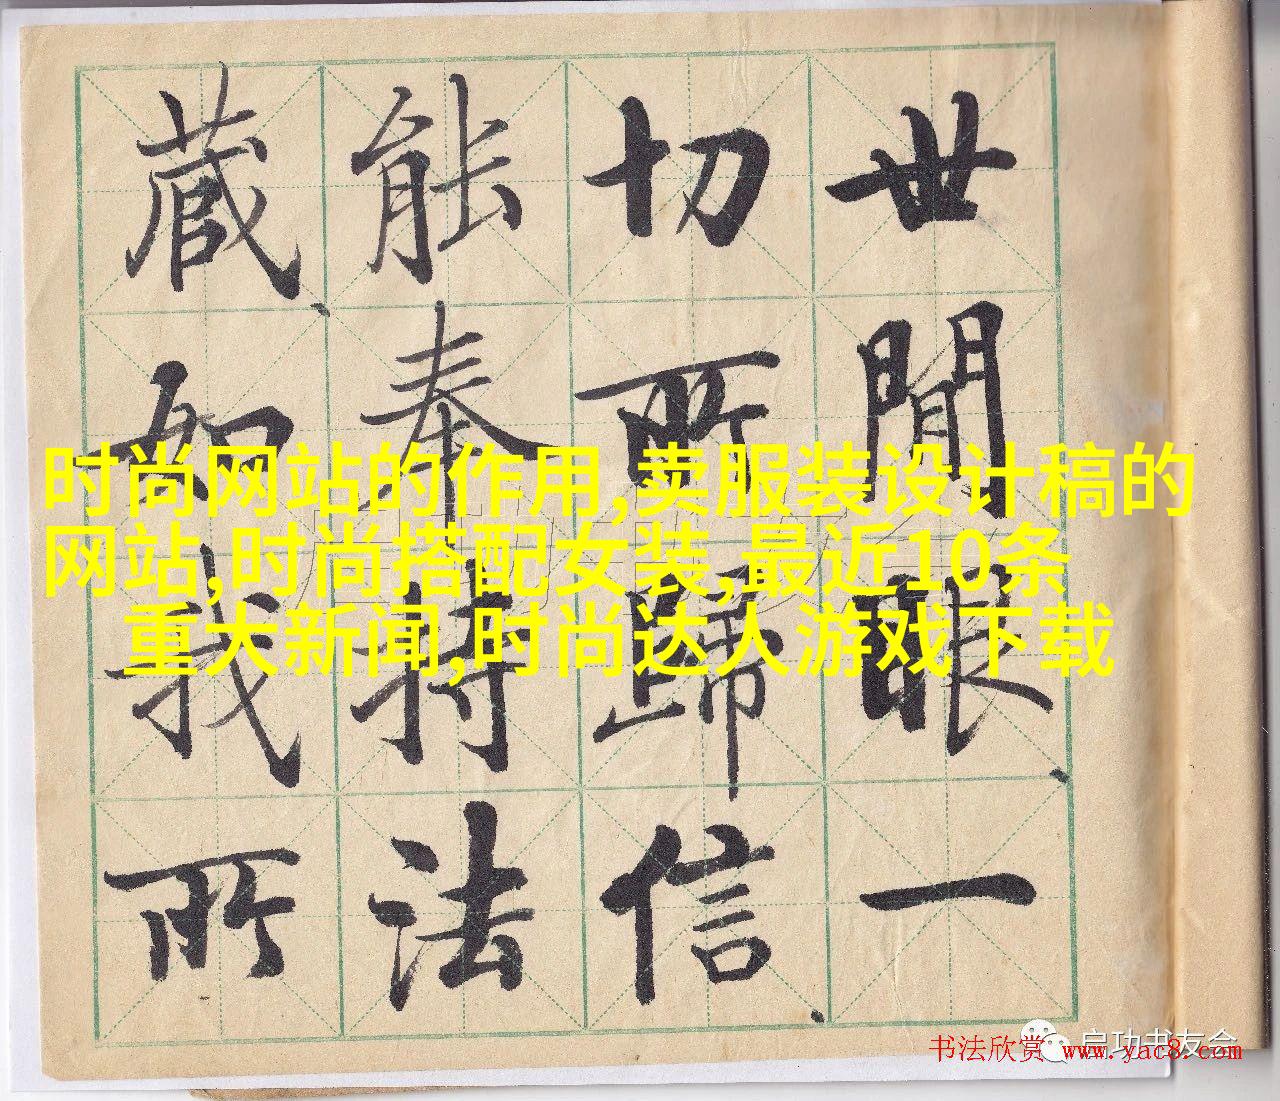 世閒眼、一
切所歸信、
能奉持法
藏、如我所
时尚网站的作用,卖服装设计稿的
网站,时尚搭配女装,最近10条
重大新闻,时尚达人游戏下载
启功书友会
书法欣赏 www.yac8.com